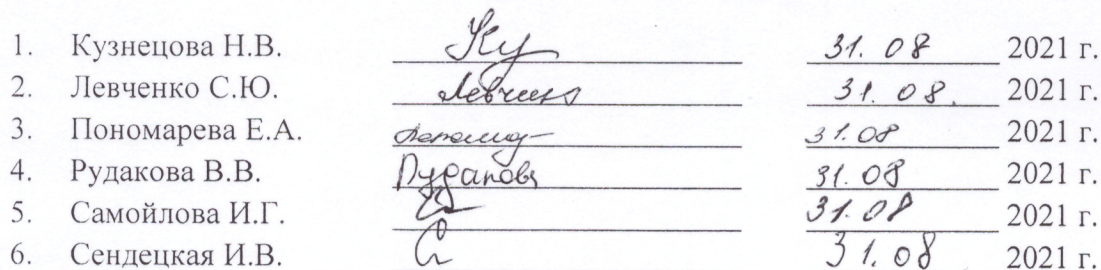 1. Кузнецова Н.В. Ку 31.08 2021 г.
2. Левченко С.Ю. 31.08. 2021 г.
3. Пономарева Е.А. 31.08 2021 г.
4. Рудакова В.В. 31.08 2021 г.
5. Самойлова И.Г. 31.08 2021 г.
6. Сендецкая И.В. 31.08 2021 г.